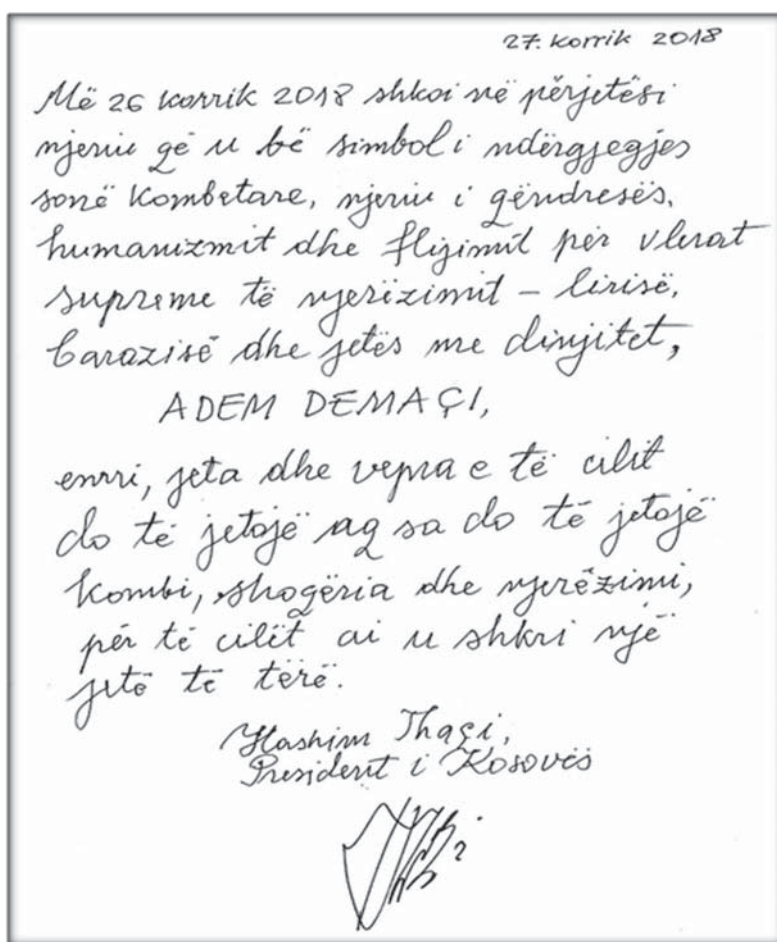 27. korrik 2018
Më 26 korrik 2018 shkoi në përjetësi
njeriu që u bë simbol i ndërgjegjes
sonë kombëtare, njeriu i qëndresës,
humanizmit dhe flijimit për vlerat
supreme të njerëzimit – lirisë,
barazisë dhe jetës me dinjitet,
ADEM DEMAÇI,
emri, jeta dhe vepra e të cilit
do të jetojë aq sa do të jetojë
kombi, shoqëria dhe njerëzimi,
për të cilët ai u shkri një
jetë të tërë.
Hashim Thaçi,
President i Kosovës